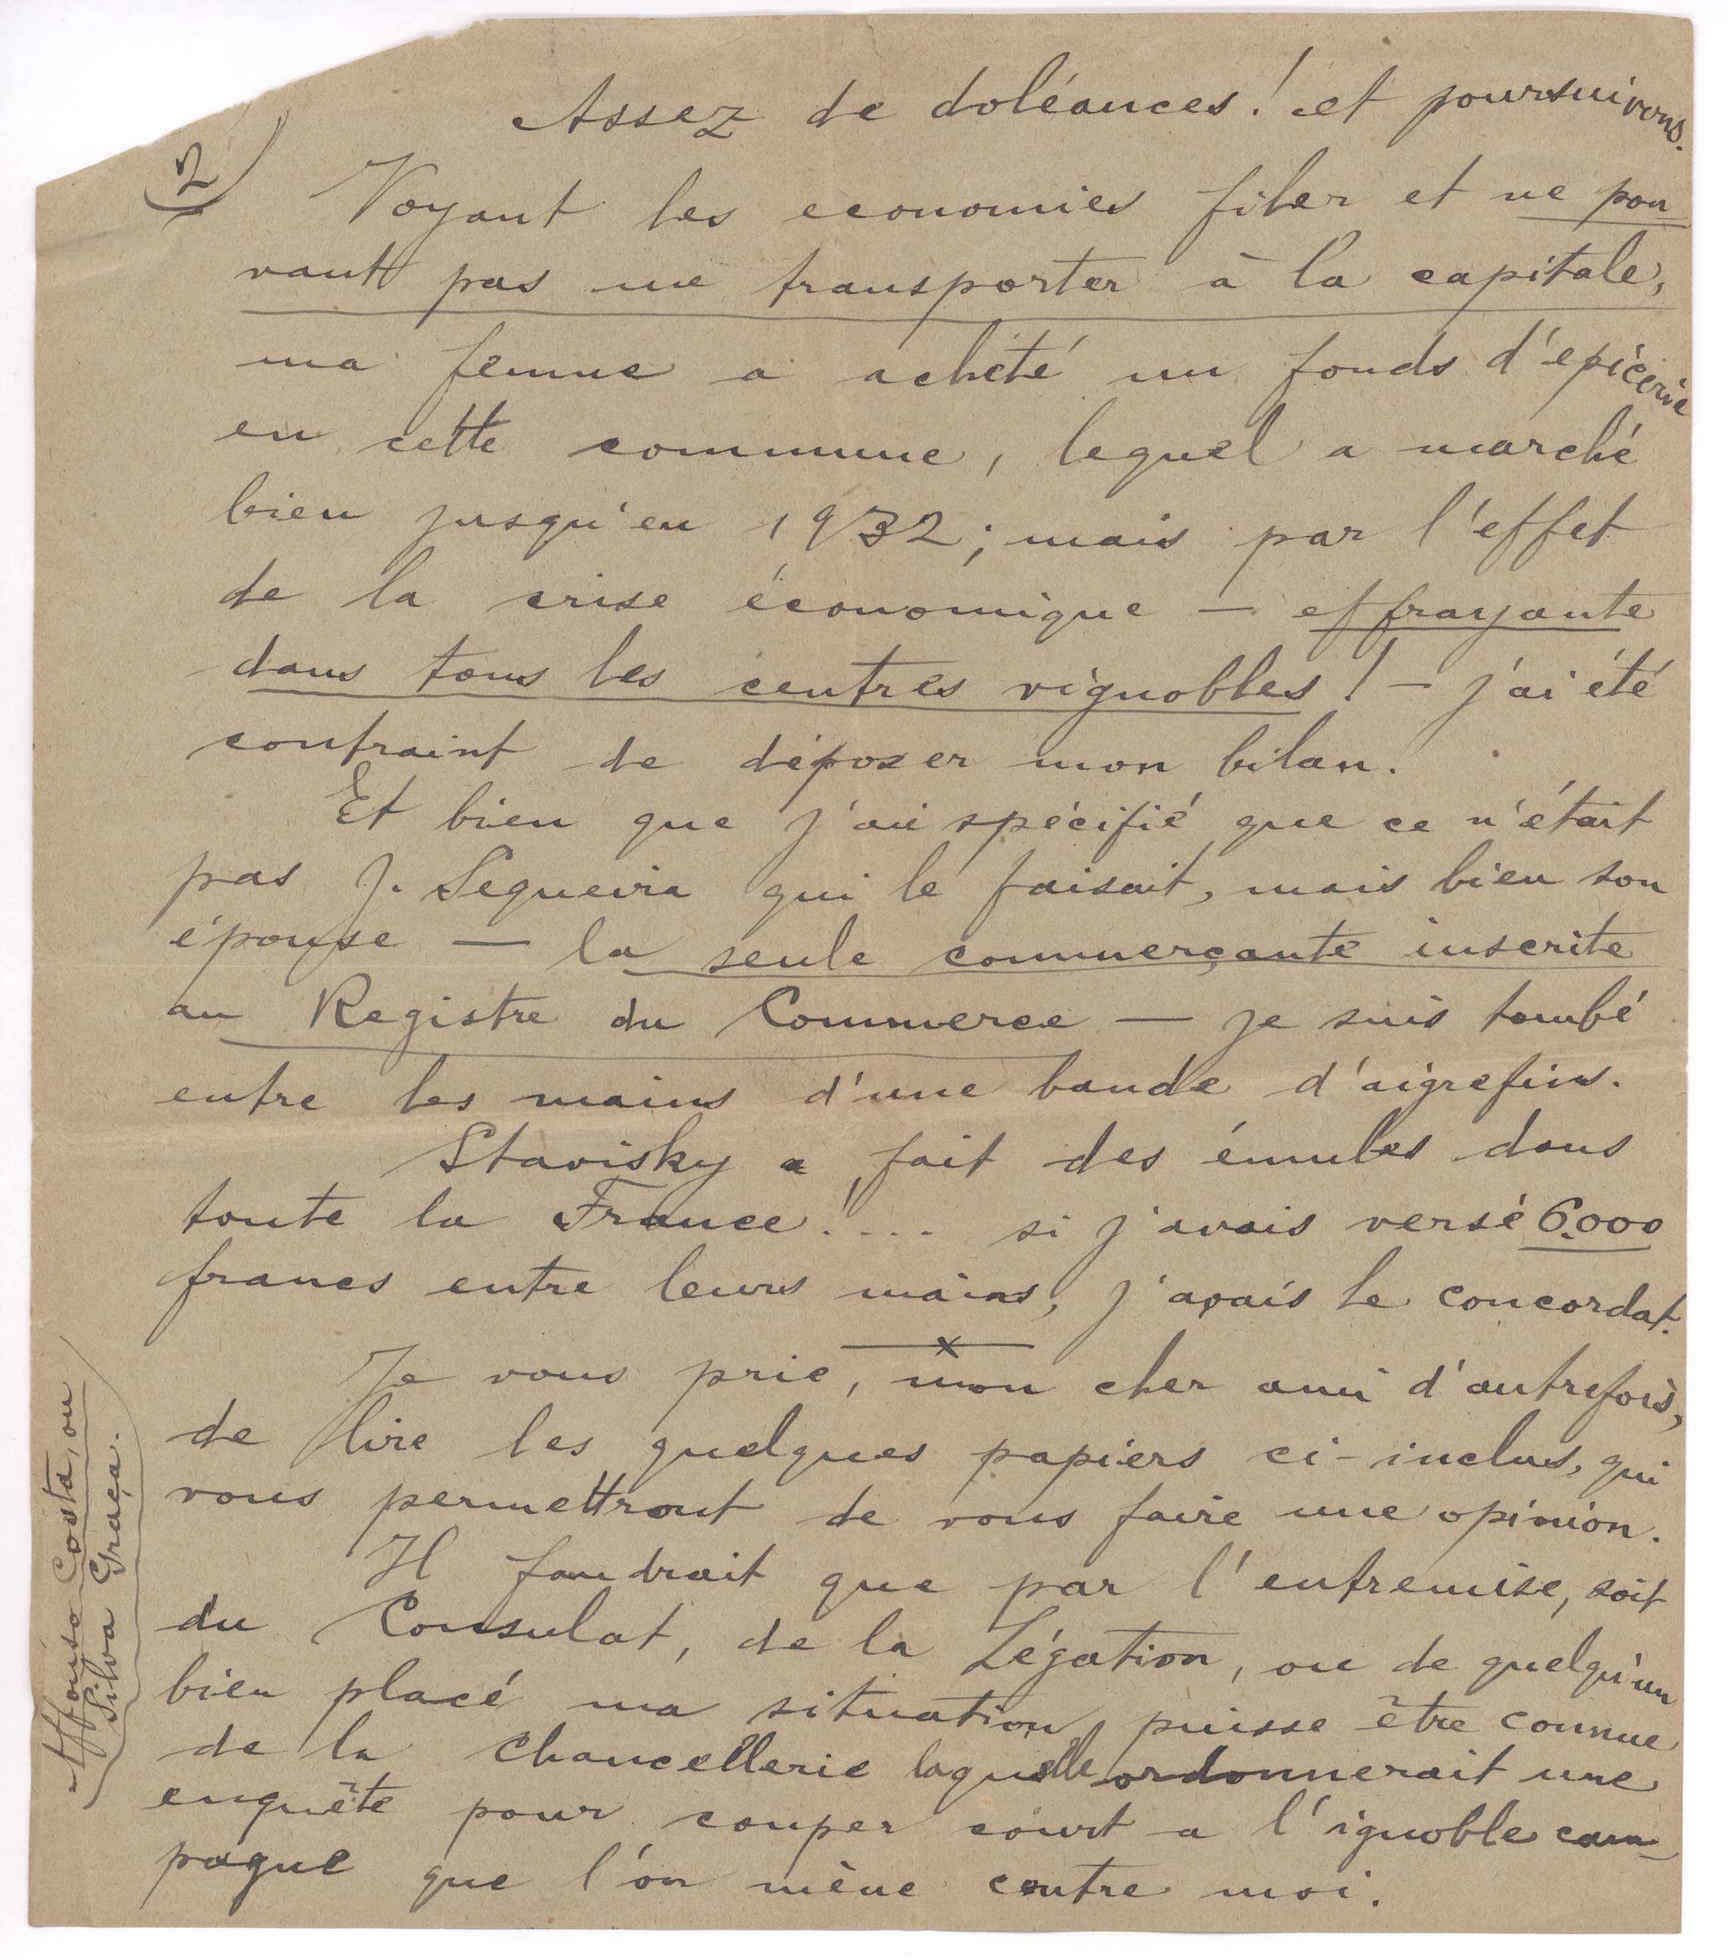 Assez de doléances! et poursuivons.
(2)
Voyant les economies filer et ne pou
vant pas me transporter à la capitale,
ma femme a acheté un fonds d'epicerie
en cette commune, lequel a marché
bien jusqu'en 1932; mais par l'effet
de la crise économique — effrayante
dans tous les centres vignobles! — j'ai été
contraint de déposer mon bilan.
Et bien que j'aie spécifié que ce n'était
pas J. Sequeira qui le faisait, mais bien son
épouse — la seule commerçante inscrite
au Registre du Commerce — je suis tombé
entre les mains d'une bande d'aigrefins.
Stavisky a fait des émules dans
toute la France!.... si j'avais versé 6.000
francs entre leurs mains, j'avais le concordat.
x
Je vous prie, mon cher ami d'autrefois,
de lire les quelques papiers ci-inclus, qui
vous permettront de vous faire une opinion.
Il faudrait que par l'entremise, soit
du Consulat, de la Légation, ou de quelqu'un
bien placé ma situation puisse être connue
de la Chancellerie laquelle ordonnerait une
enquête pour couper court a l'ignoble cam-
pagne que l'on mène contre moi.
Affonso Costa, ou
Silva Graça.